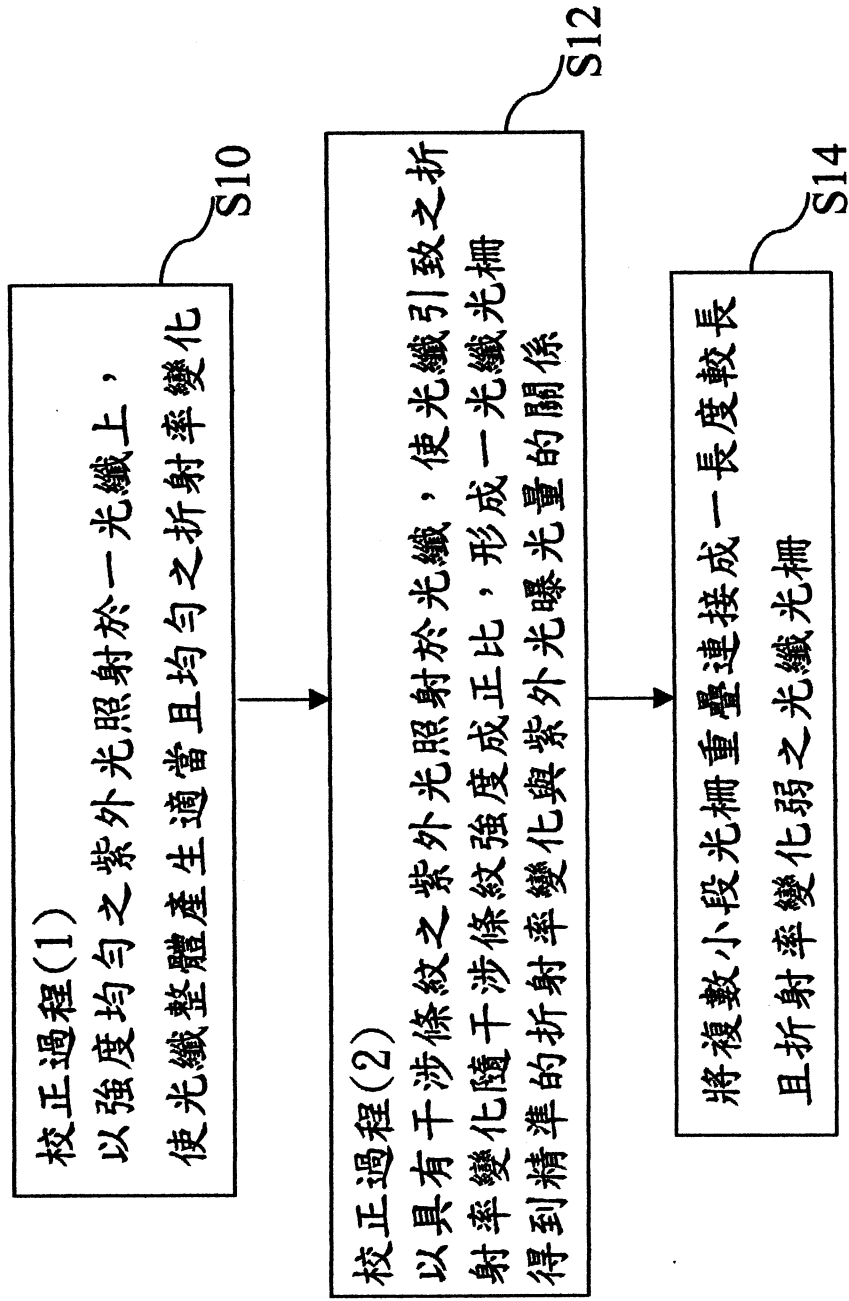 S10
校正過程(1)
以強度均勻之紫外光照射於一光纖上，
使光纖整體產生適當且均勻之折射率變化
S12
校正過程(2)
以具有干涉條紋之紫外光照射於光纖，使光纖引致之折
射率變化隨干涉條紋強度成正比，形成一光纖光柵
得到精準的折射率變化與紫外光曝光量的關係
S14
將複數小段光柵重疊連接成一長度較長
且折射率變化弱之光纖光柵